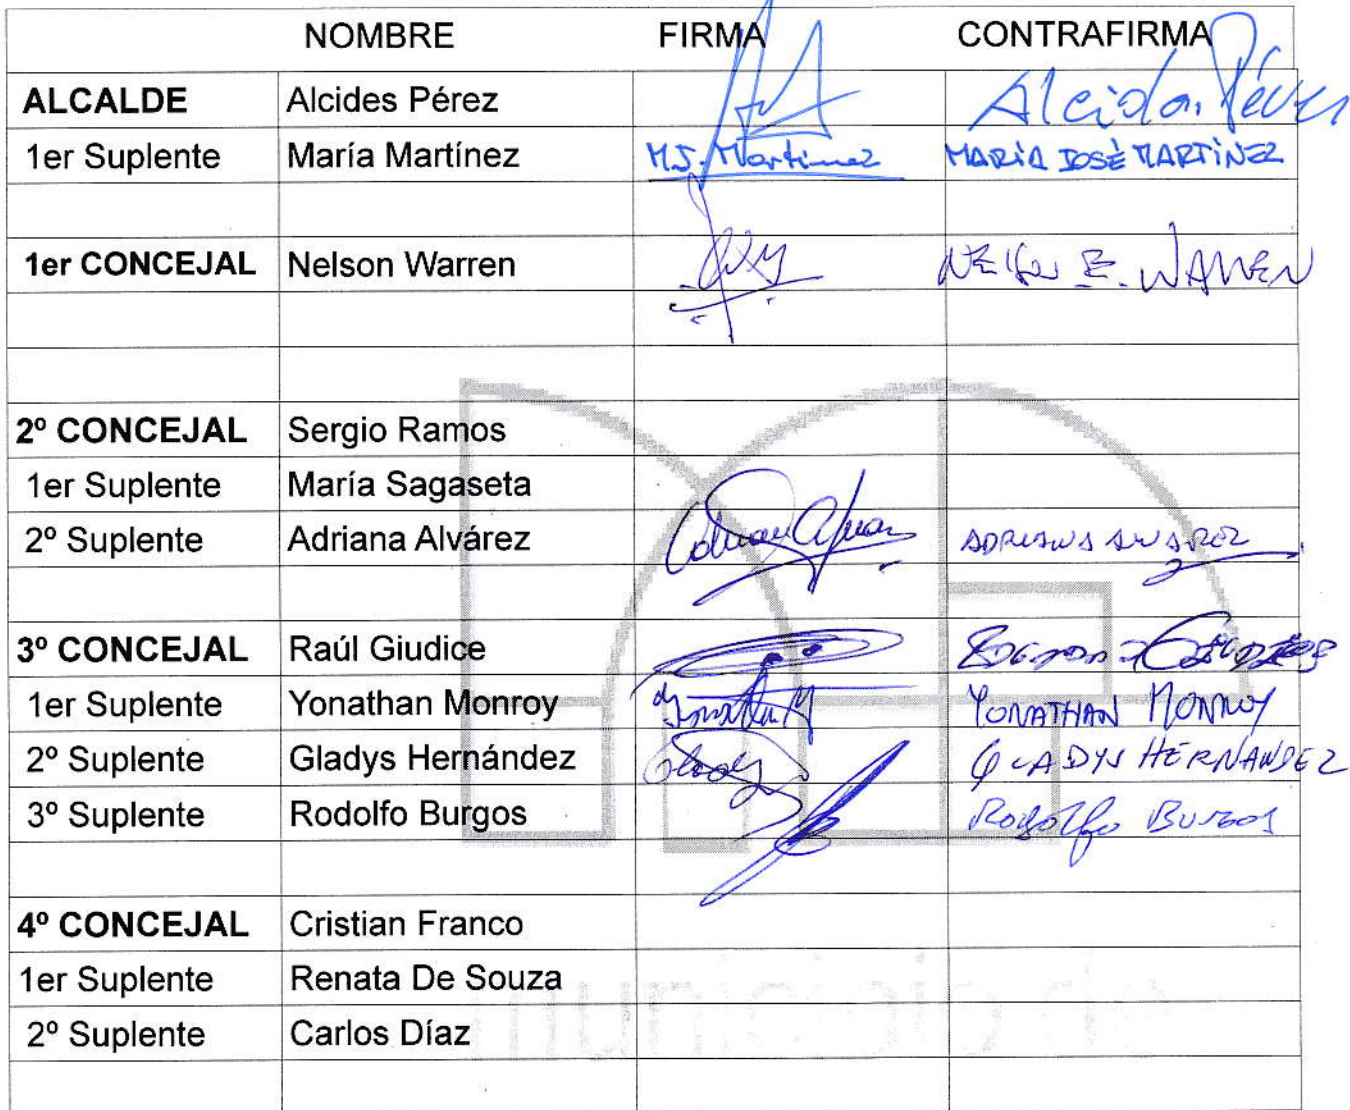 NOMBRE FIRMA CONTRAFIRMA
ALCALDE Alcides Pérez Alcides Pérez
1er Suplente María Martínez M.J. Martinez MARÍA JOSÉ MARTÍNEZ
1er CONCEJAL Nelson Warren NELSON E. WARREN
2º CONCEJAL Sergio Ramos
1er Suplente María Sagaseta
2º Suplente Adriana Alvárez ADRIANA ALVAREZ
3º CONCEJAL Raúl Giudice
1er Suplente Yonathan Monroy YONATHAN MONROY
2º Suplente Gladys Hernández Gladys GLADYS HERNANDEZ
3º Suplente Rodolfo Burgos Rodolfo BURGOS
4º CONCEJAL Cristian Franco
1er Suplente Renata De Souza
2º Suplente Carlos Díaz